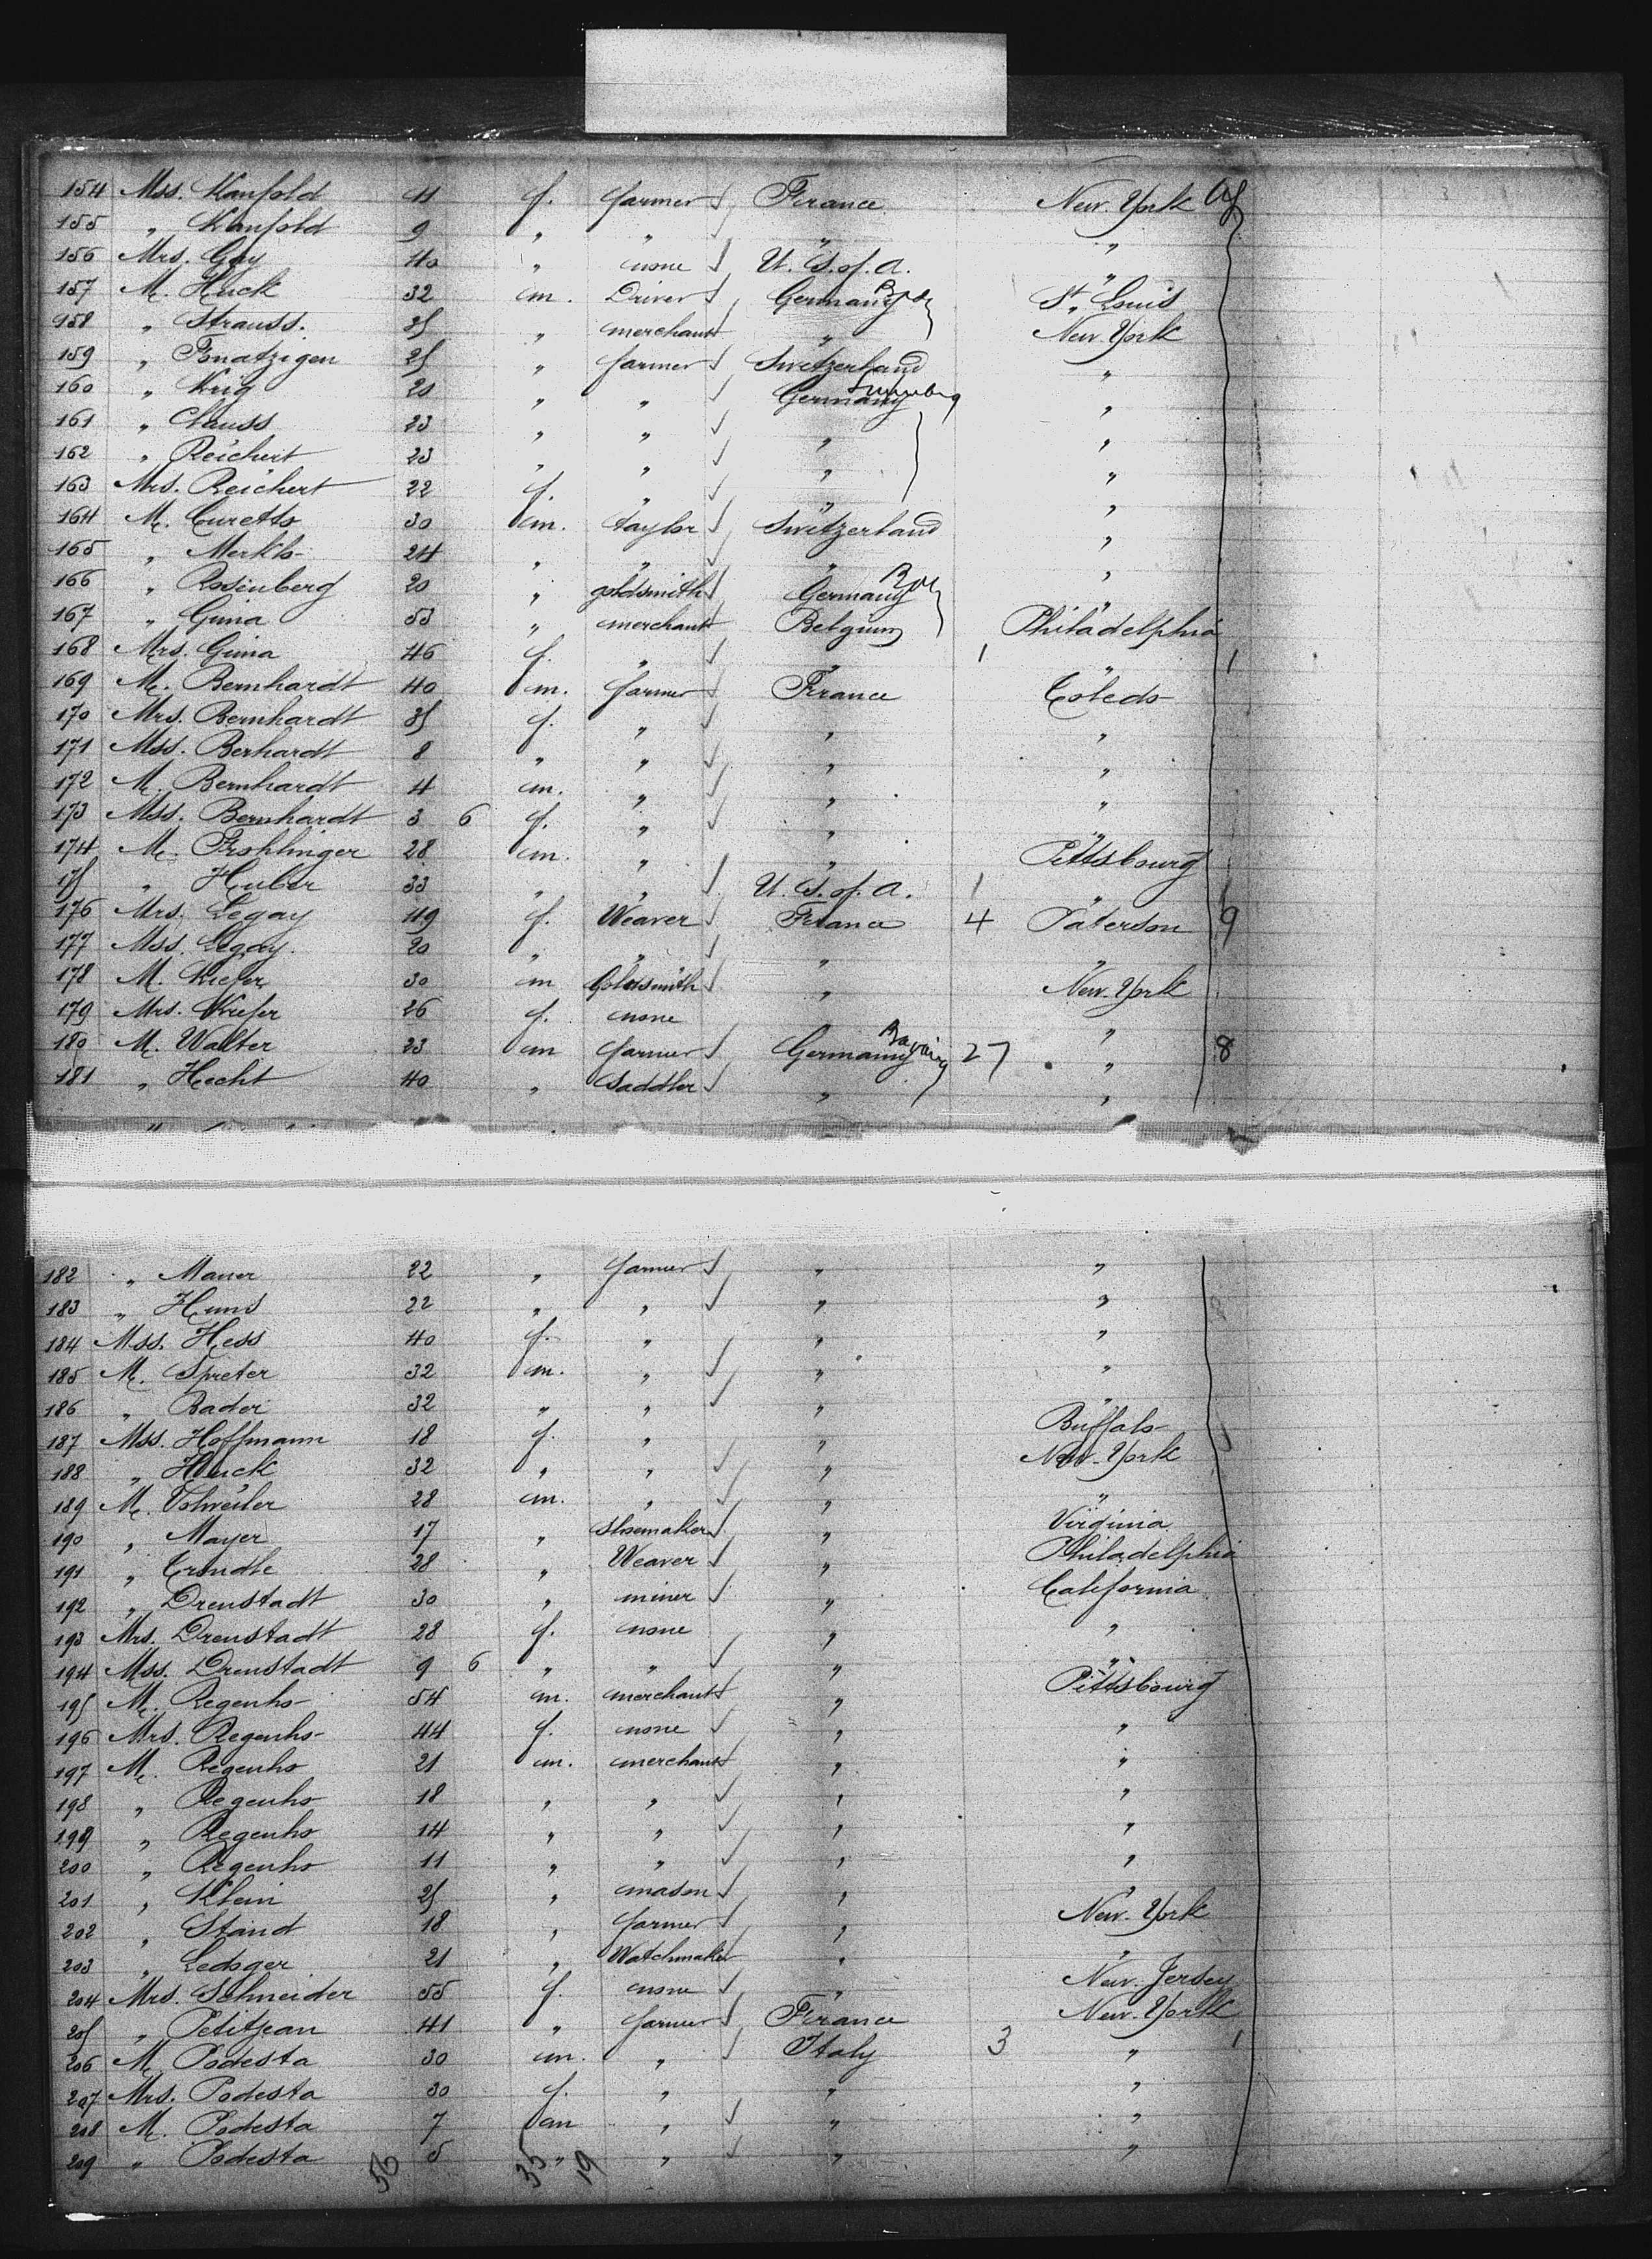 154 Mss. Kanfold 11 f. farmer France New-York
155 " Kanfold 9 " " " "
156 Mrs. Gay 40 " none U. S. of. A. "
157 M. Huck 32 m. Driver Germany St. Louis
158 " Strauss. 25 " merchant " New-York
159 " Fonatzigen 25 " farmer Switzerland "
160 " Krig 20 " " Germany "
161 " Clauss 23 " " " "
162 " Reichert 23 " " " "
163 Mrs. Reichert 22 f. " " "
164 M. Curetto 30 m. taylor Switzerland "
165 " Merklo 24 " " " "
166 " Rosenberg 20 " goldsmith Germany "
167 " Gima 53 " merchant Belgium Philadelphia
168 Mrs. Gima 46 f. " " 1 " 1
169 M. Bernhardt 40 m. farmer France Toledo
170 Mrs. Bernhardt 35 f. " " "
171 Mss. Berhardt 8 " " " "
172 M. Bernhardt 4 m. " " "
173 Mss. Bernhardt 3 6 f. " " "
174 M. Frohlinger 28 m. " " Pittsbourg
175 " Huber 33 " " U. S. of. A. 1 "
176 Mrs. Legay 49 f. Weaver France 4 Paterson 9
177 Mss. Legay. 20 " " " "
178 M. Kiefer 30 m Goldsmith " New-York
179 Mrs. Kiefer 26 f. none "
180 M. Walter 23 m farmer Germany Bavaria 27 " 8
181 " Hecht 40 " Saddler " "
182 " Maner 22 " farmer " "
183 " Huns 22 " " " "
184 Mss. Hess 40 f. " " "
185 M. Spreter 32 m. " " "
186 " Bader 32 " " " "
187 Mss. Hoffmann 18 f. " " Buffalo
188 " Huck 32 " " " New-York
189 M. Volweiler 28 m. " " "
190 " Mayer 17 " Shoemaker " Virginia
191 " Trondle 28 " Weaver " Philadelphia
192 " Drenstadt 30 " miner " California
193 Mrs. Drenstadt 28 f. none " "
194 Mss. Drenstadt 9 6 " " " "
195 M. Regenho 54 m. merchant " Pittsbourg
196 Mrs. Regenho 44 f. none " "
197 M. Regenho 21 m. merchant " "
198 " Regenho 18 " " " "
199 " Regenho 14 " " " "
200 " Regenho 11 " " " "
201 " Klein 25 " mason " "
202 " Stand 18 " farmer " New-York
203 " Ledoger 21 " Watchmaker " "
204 Mrs. Schneider 55 f. none " New-Jersey
205 " Petitjean 41 " farmer France New-York
206 M. Podesta 30 m. " Italy 3 " 1
207 Mrs. Podesta 30 f. " " "
208 M. Podesta 7 m " " "
209 " Podesta 5 " " " "
56 35 19